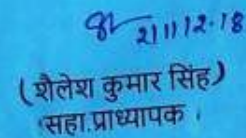 21/12.18
(शैलेश कुमार सिंह)
सहा.प्राध्यापक